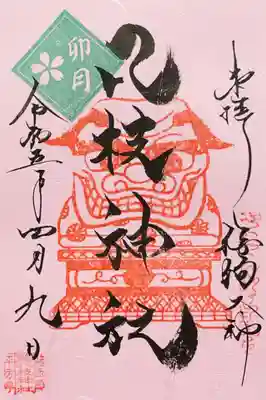 奉拝 狛狗大神
八枝神社
卯月
令和五年四月九日